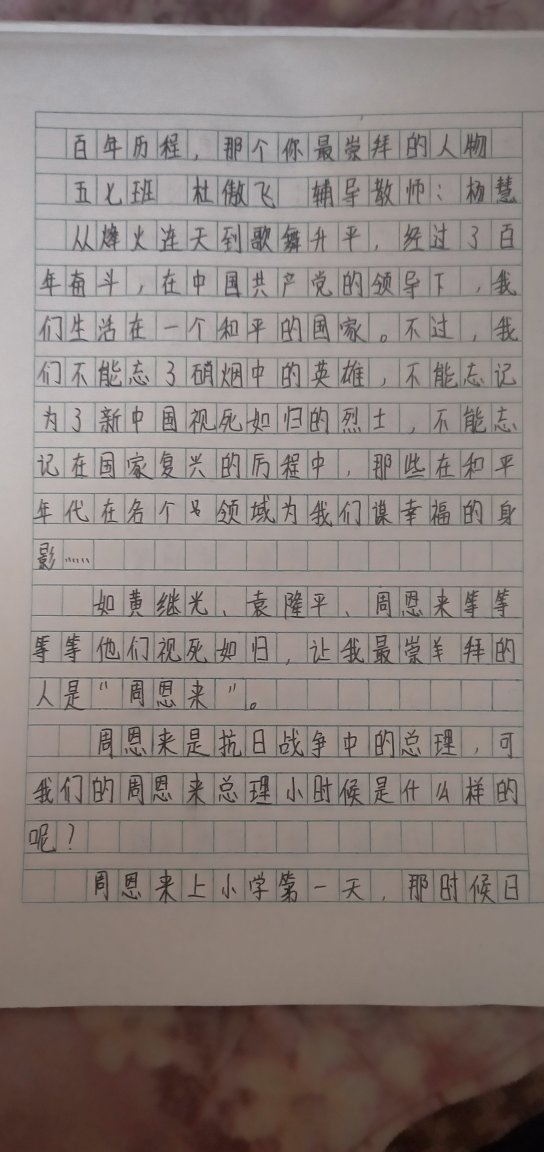 百年历程，那个你最崇拜的人物
五七班 杜傲飞 辅导教师：杨慧
从烽火连天到歌舞升平，经过了百
年奋斗，在中国共产党的领导下，我
们生活在一个和平的国家。不过，我
们不能忘了硝烟中的英雄，不能忘记
为了新中国视死如归的烈士，不能忘
记在国家复兴的历程中，那些在和平
年代在各个领域为我们谋幸福的身
影……
如黄继光、袁隆平、周恩来等等
等等他们视死如归，让我最崇拜的
人是“周恩来”。
周恩来是抗日战争中的总理，可
我们的周恩来总理小时候是什么样的
呢？
周恩来上小学第一天，那时候日